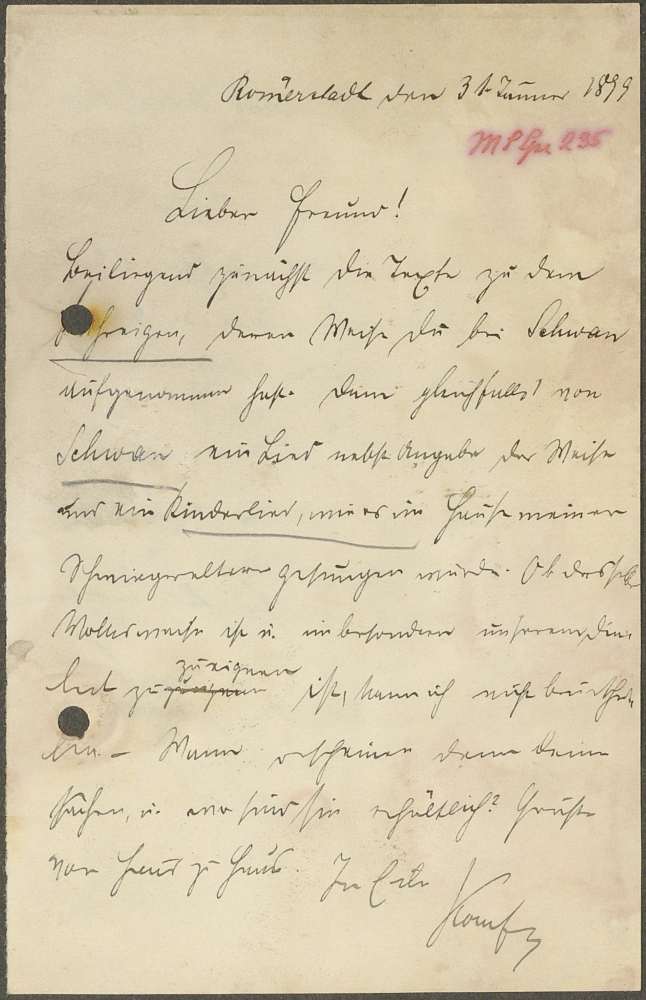 Römerstadt den 31. Jänner 1899
Lieber Freund!
Beiliegend zunächst die Texte zu dem
deren Weise Du bei Schwan
aufgenommen hast. Dann gleichfalls von
Schwan ein Lied nebst Angabe der Weise
und ein Kinderlied, wie es im Hause meiner
Schwiegereltern gesungen wurde. Ob dasselbe
Volksweise ist u. insbesondere unserem Dia-
lect zuzueignen ist, kann ich nicht beurthei-
len – Wann erscheinen denn Deine
Sachen, u. wo sind sie erhältlich? Grüße
von Haus zu Haus. In Eile